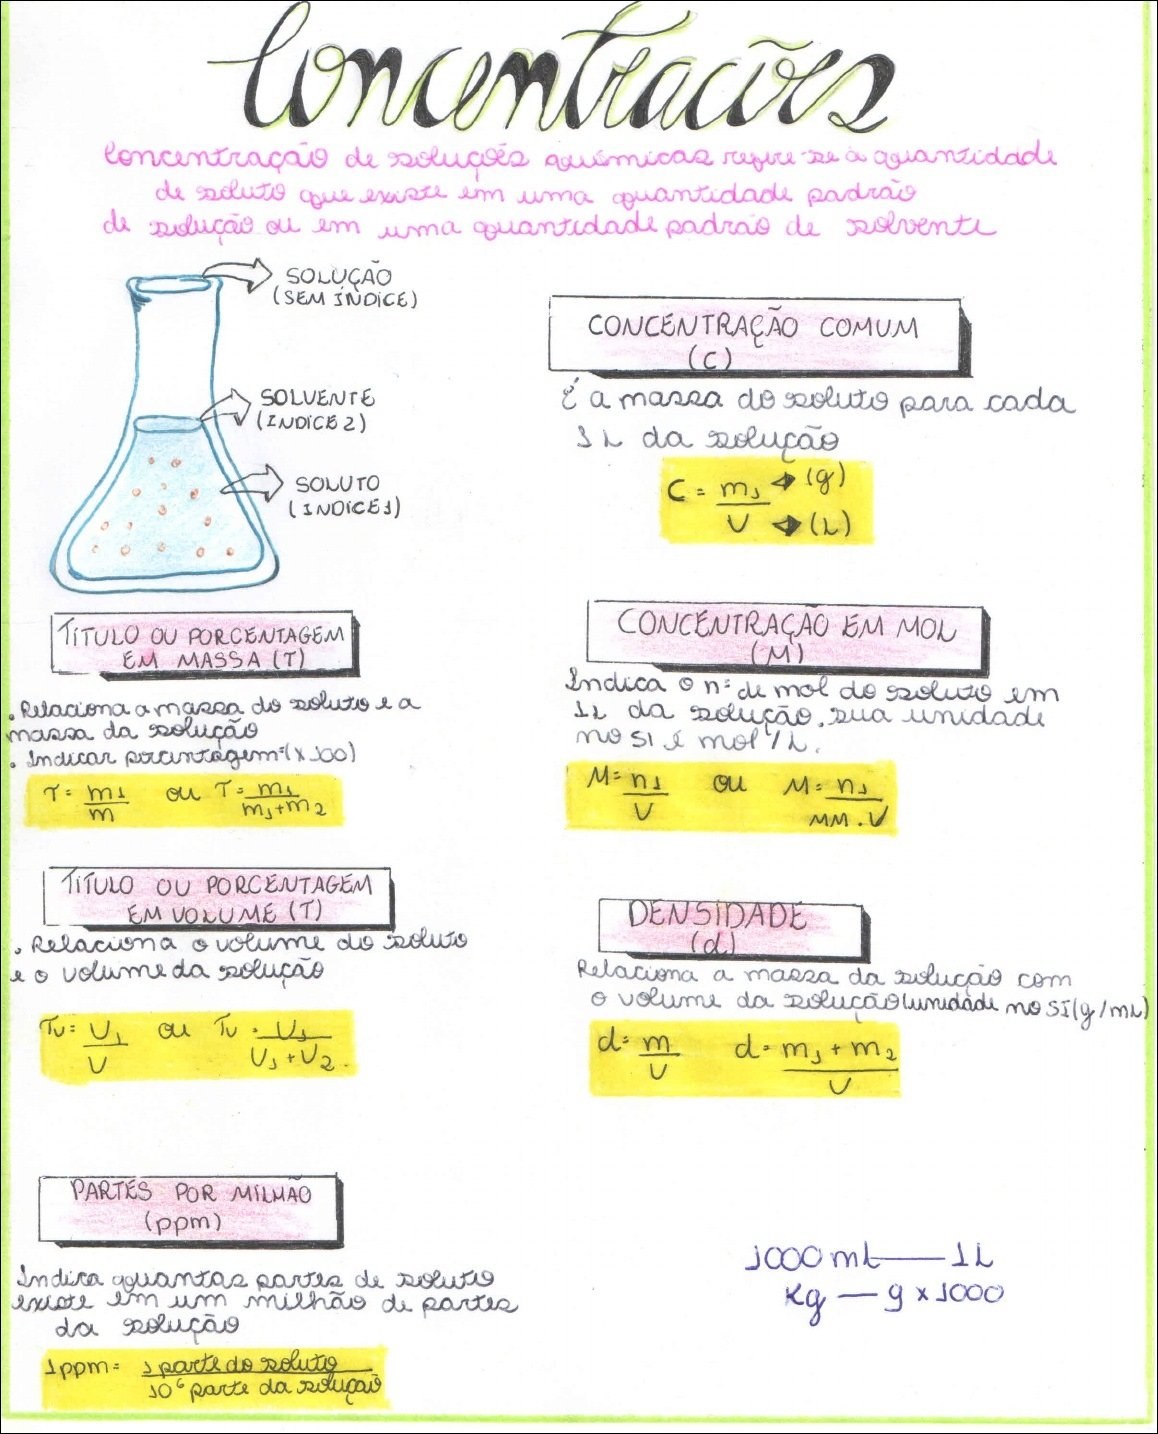 Concentrações
Concentração de soluções químicas refire-se à quantidade
de soluto que existe em uma quantidade padrão
de solução ou em uma quantidade padrão de solvente
SOLUÇÃO
(SEM ÍNDICE)
SOLVENTE
(ÍNDICE 2)
SOLUTO
(ÍNDICE 1)
TÍTULO OU PORCENTAGEM
EM MASSA (T)
. Relaciona a massa do soluto e a
massa da solução
. Indicar porcentagem=(x 100)
T = m1/m ou T = m1/m1+m2
TÍTULO OU PORCENTAGEM
EM VOLUME (T)
. Relaciona o volume do soluto
e o volume da solução
Tv = V1/V ou Tv = V1/V1+V2
PARTES POR MILHÃO
(ppm)
Indica quantas partes de soluto
existe em um milhão de partes
da solução
1 ppm = 1 parte do soluto
10⁶ parte da solução
CONCENTRAÇÃO COMUM
(C)
É a massa do soluto para cada
1 L da solução
C = m1 (g)
V (L)
CONCENTRAÇÃO EM MOL
(M)
Indica o nº de mol do soluto em
1L da solução, sua unidade
no SI é mol/L.
M = n1/V ou M = n1/MM . V
DENSIDADE
(d)
Relaciona a massa da solução com
o volume da solução (unidade no SI (g/mL)
d = m/V d = m1 + m2/V
1000 mL — 1L
Kg — g x 1000